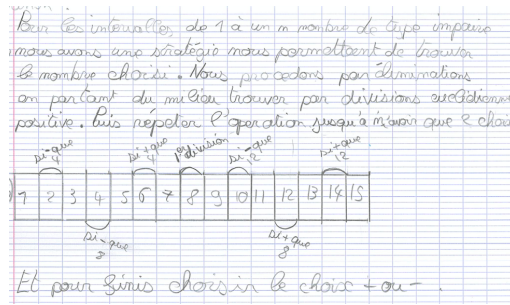 Pour les intervalles, de 1 à un n nombre de type impaire
nous avons une stratégie nous permettant de trouver
le nombre choisi. Nous procedons par éliminations
en partant du milieu trouver par divisions euclidienne
positive. Puis répéter l'opération jusqu'à n'avoir que 2 choix
si - que 4
si + que 4
1ère division
si - que 12
si + que 12
1 2 3 4 5 6 7 8 9 10 11 12 13 14 15
si - que 8
si + que 8
Et pour finis choisir le choix + ou - .